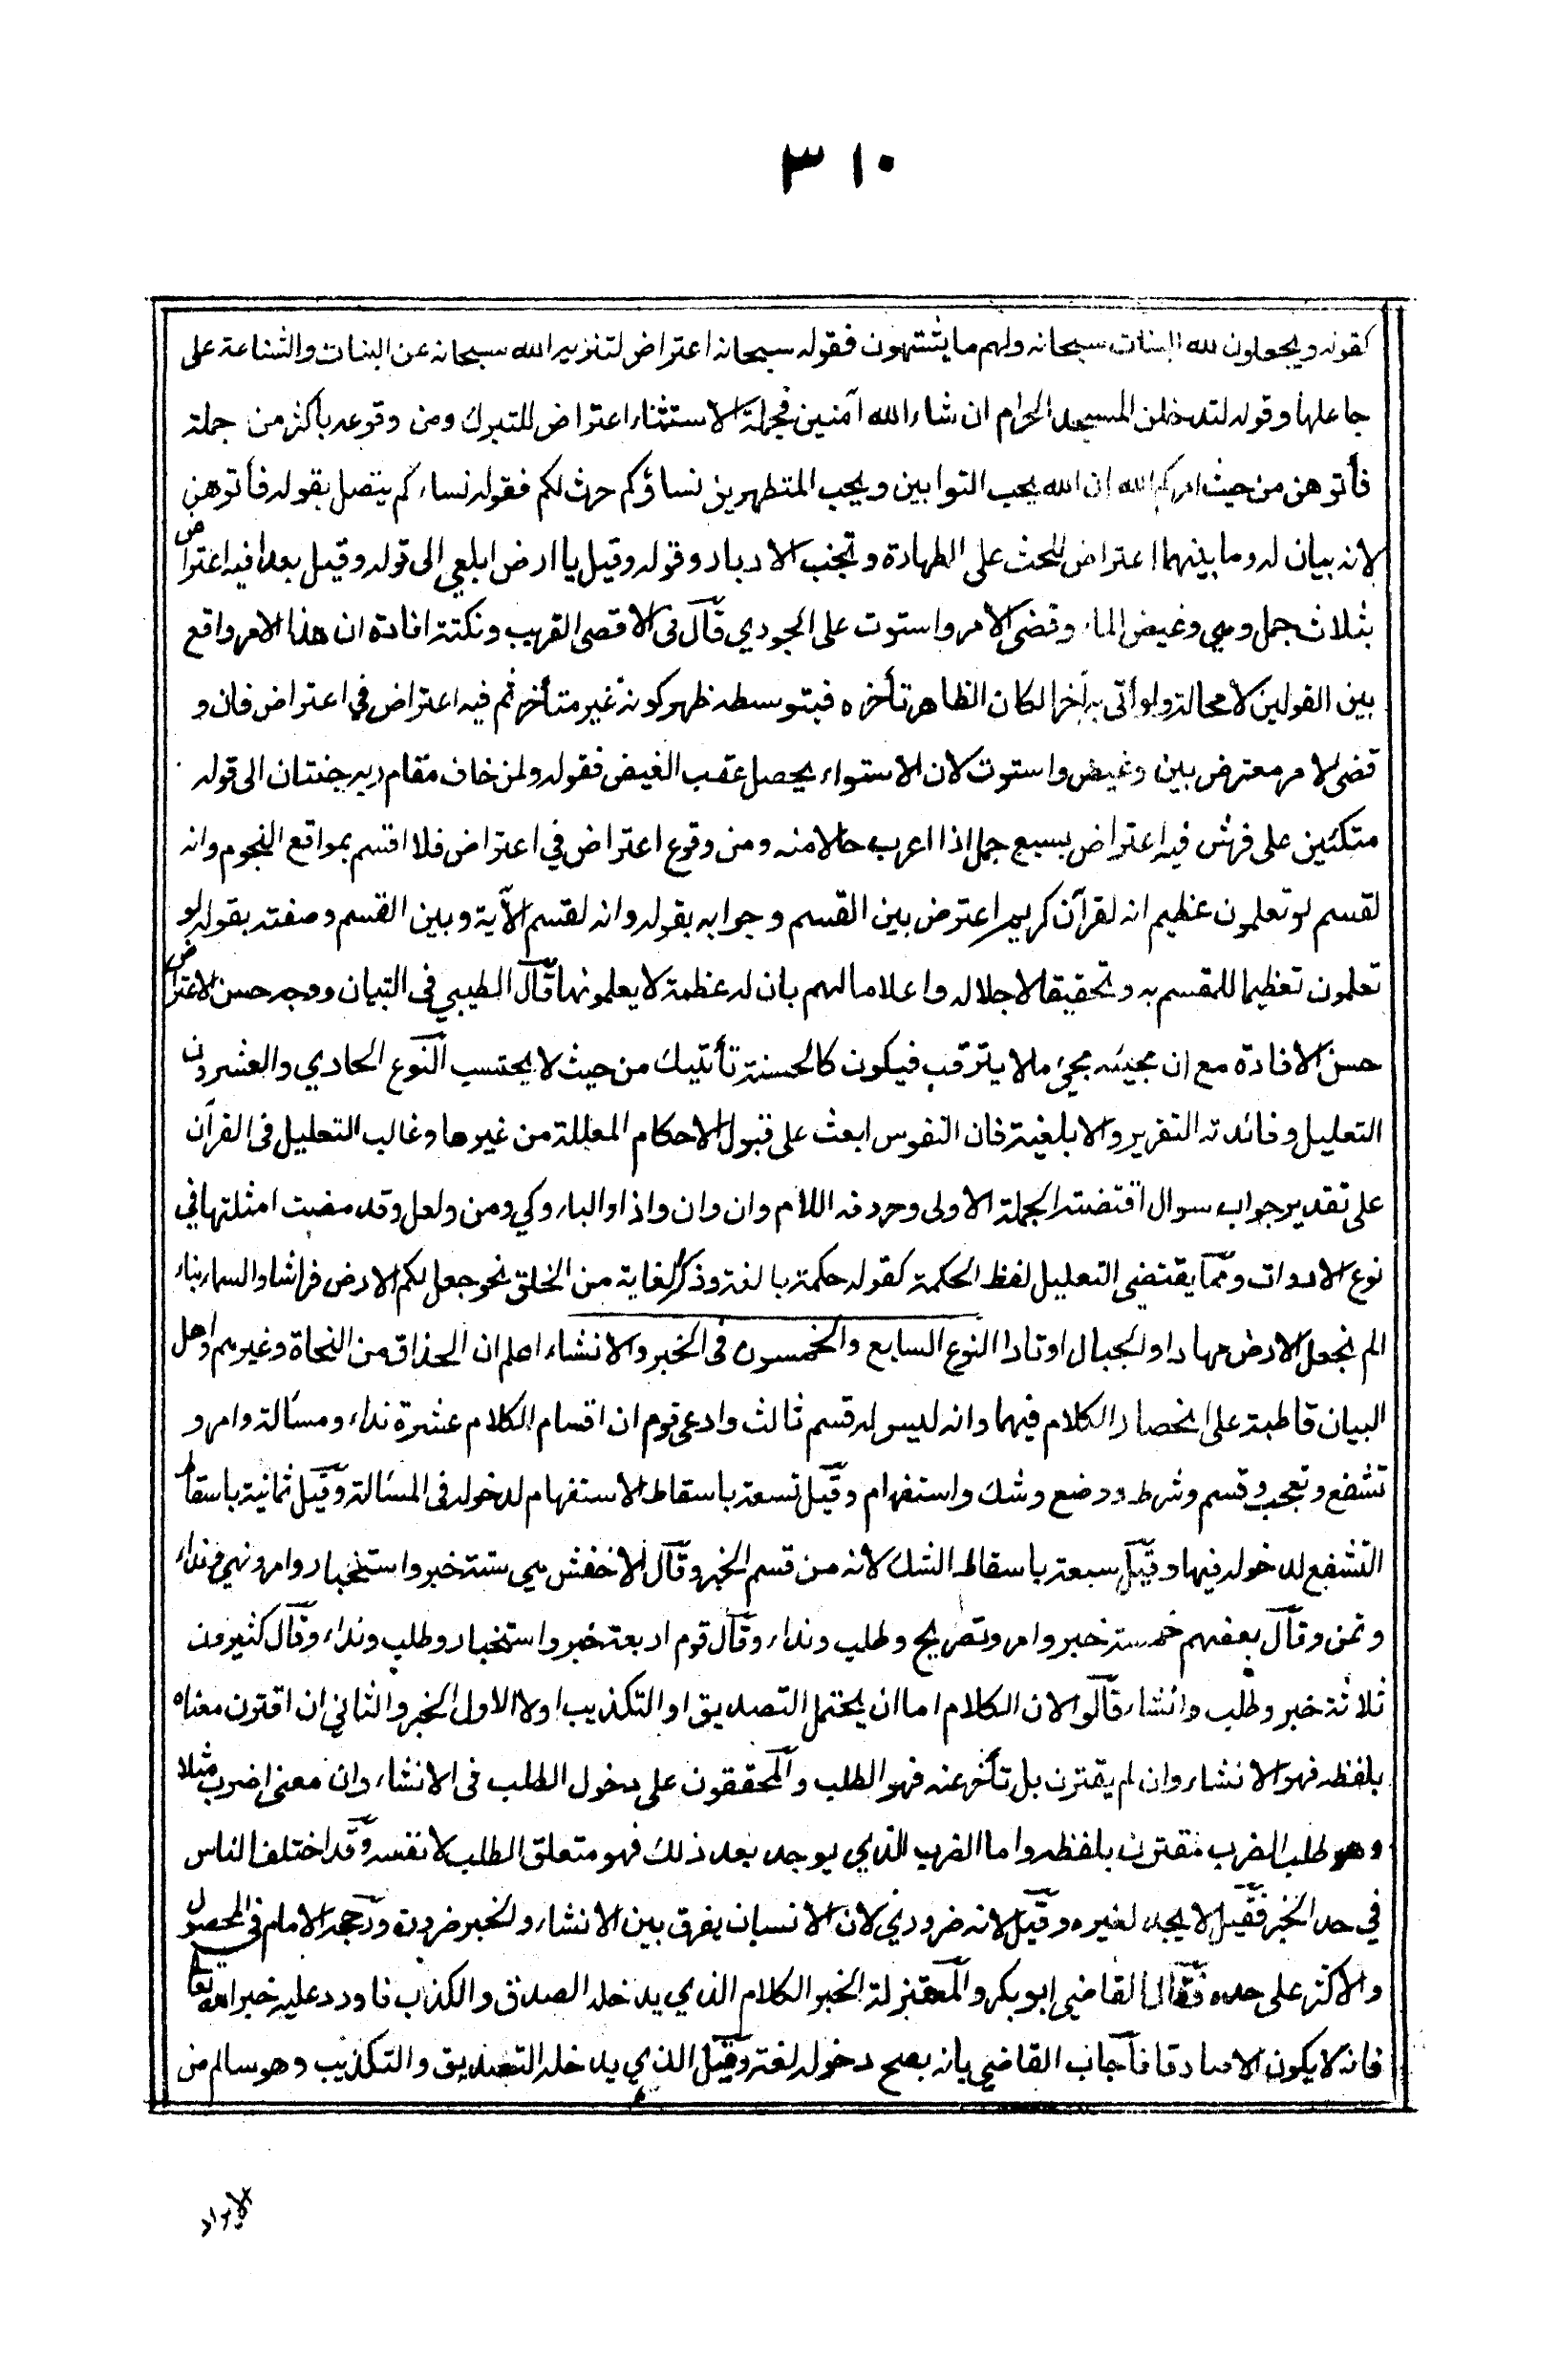 ٣١٠
كقوله ويجعلون لله البنات سبحانه ولهم ما يشتهون فقوله سبحانه اعتراض لتنزيه الله سبحانه عن البنات والشناعة على
جاعلها وقوله لتدخلن المسجد الحرام ان شاء الله آمنين فجملة الاستثناء اعتراض للتبرك ومن وقوعه باكثر من جملة
فأتوهن من حيث امركم الله ان الله يحب التوابين ويحب المتطهرين نساؤكم حرث لكم فقوله نساءكم يتصل بقوله فأتوهن
لانه بيان له وما بينهما اعتراض للحث على الطهارة وتجنب الادبار وقوله وقيل يا ارض ابلعي الى قوله وقيل بعدا فيه اعتراض
بثلاث جمل وهي وغيض الماء وقضى الامر واستوت على الجودي قال في الاقصى القريب ونكتته افادة ان هذا الامر واقع
بين القولين لا محالة ولو أتى به آخرا لكان الظاهر تأخره فبتوسطه ظهر كونه غير متأخر ثم فيه اعتراض في اعتراض فان و
قضى الامر معترض بين وغيض واستوت لان الاستواء يحصل عقب الغيض فقوله ولمن خاف مقام ربه جنتان الى قوله
متكئين على فرش فيه اعتراض بسبع جمل اذا اعرب حالا منه ومن وقوع اعتراض في اعتراض فلا اقسم بمواقع النجوم وانه
لقسم لو تعلمون عظيم انه لقرآن كريم اعترض بين القسم وجوابه بقوله وانه لقسم الآية وبين القسم وصفته بقوله لو
تعلمون تعظيما للمقسم به وتحقيقا لاجلاله واعلاما لهم بان له عظمة لا يعلمونها قال الطيبي في التبيان ووجه حسن الاعتراض
حسن الافادة مع ان مجيئه مجئ ما لا يترقب فيكون كالحسنة تأتيك من حيث لا يحتسب النوع الحادي والعشرون
التعليل وفائدته التقرير والابلغية فان النفوس ابعث على قبول الاحكام المعللة من غيرها وغالب التعليل في القرآن
على تقدير جواب سوال اقتضته الجملة الاولى وحروفه اللام وان وان واذ او الباء وكي ومن ولعل وقد مضت امثلتها في
نوع الادوات ومما يقتضى التعليل لفظ الحكمة كقوله حكمة بالغة وذكر الغاية من الخلق نحو جعل لكم الارض فراشا والسماء بناء
الم نجعل الارض مهادا والجبال اوتادا النوع السابع والخمسون في الخبر والانشاء اعلم ان الحذاق من النحاة وغيرهم واهل
البيان قاطبة على انحصار الكلام فيهما وانه ليس له قسم ثالث وادعى قوم ان اقسام الكلام عشرة نداء ومسألة وامر و
تشفع وتعجب وقسم وشرط ووضع وشك واستفهام وقيل تسعة باسقاط الاستفهام لدخوله في المسألة وقيل ثمانية باسقاط
التشفع لدخوله فيها وقيل سبعة باسقاط الشك لانه من قسم الخبر وقال الاخفش هي ستة خبر واستخبار وامر ونهي ونداء
وتمن وقال بعضهم خمسة خبر وامر وتصريح وطلب ونداء وقال قوم اربعة خبر واستخبار وطلب ونداء وقال كثيرون
ثلاثة خبر وطلب وانشاء قالوا لان الكلام اما ان يحتمل التصديق او التكذيب او لا الاول الخبر والثاني ان اقترن معناه
بلفظه فهو الانشاء وان لم يقترن بل تأخر عنه فهو الطلب والمحققون على دخول الطلب في الانشاء وان معنى اضرب مثلا
وهو طلب الضرب مقترن بلفظه واما الضرب الذي يوجد بعد ذلك فهو متعلق الطلب لا نفسه وقد اختلف الناس
في حد الخبر فقيل لا يحد لعسره وقيل لانه ضروري لان الانسان يفرق بين الانشاء والخبر ضرورة ورجحه الامام في المحصول
والاكثر على حده فقال القاضي ابو بكر والمعتزلة الخبر الكلام الذي يدخله الصدق والكذب فاورد عليه خبر الله تعالى
فانه لا يكون الا صادقا فأجاب القاضي بانه يصح دخوله لغة وقيل الذي يدخله التصديق والتكذيب وهو سالم من
الايراد